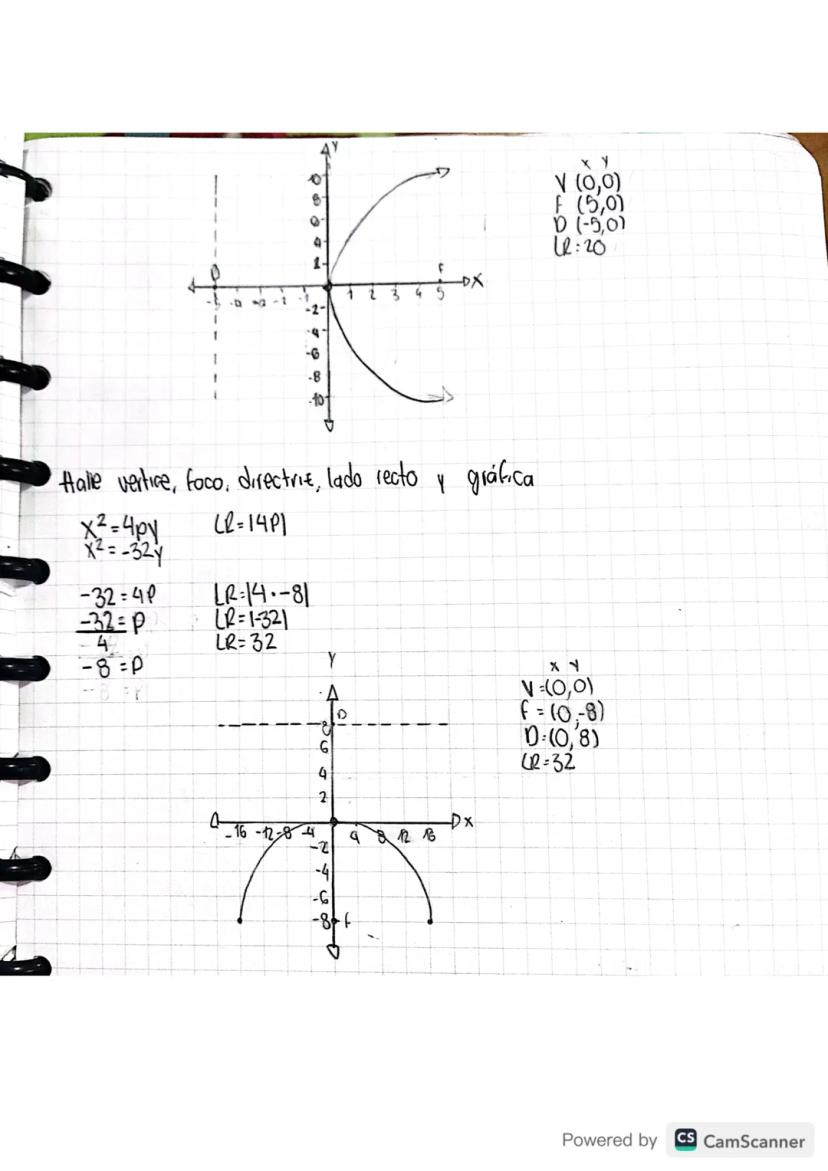 Y
10
8
6
4
2
D
F
X
-5 -4 -3 -2 -1 1 2 3 4 5
-2
-4
-6
-8
-10
x y
V (0,0)
F (5,0)
D (-5,0)
LR: 20
Halle vertice, foco, directriz, lado recto y gráfica
x² = 4py
LR = |4P|
x² = -32y
-32 = 4P
LR = |4 · -8|
-32 = P
4
LR = |-32|
LR = 32
-8 = P
Y
D
8
6
4
2
-16 -12 -8 -4 4 8 12 16
X
-2
-4
-6
-8 F
x y
V = (0,0)
F = (0,-8)
D: (0,8)
LR = 32
Powered by CS CamScanner